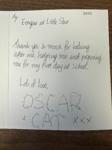 Everyone at Little Star
Thank you so much for looking
after me, helping me and preparing
me for my first day at school.
Lots of love,
OSCAR
+ CAT xxx